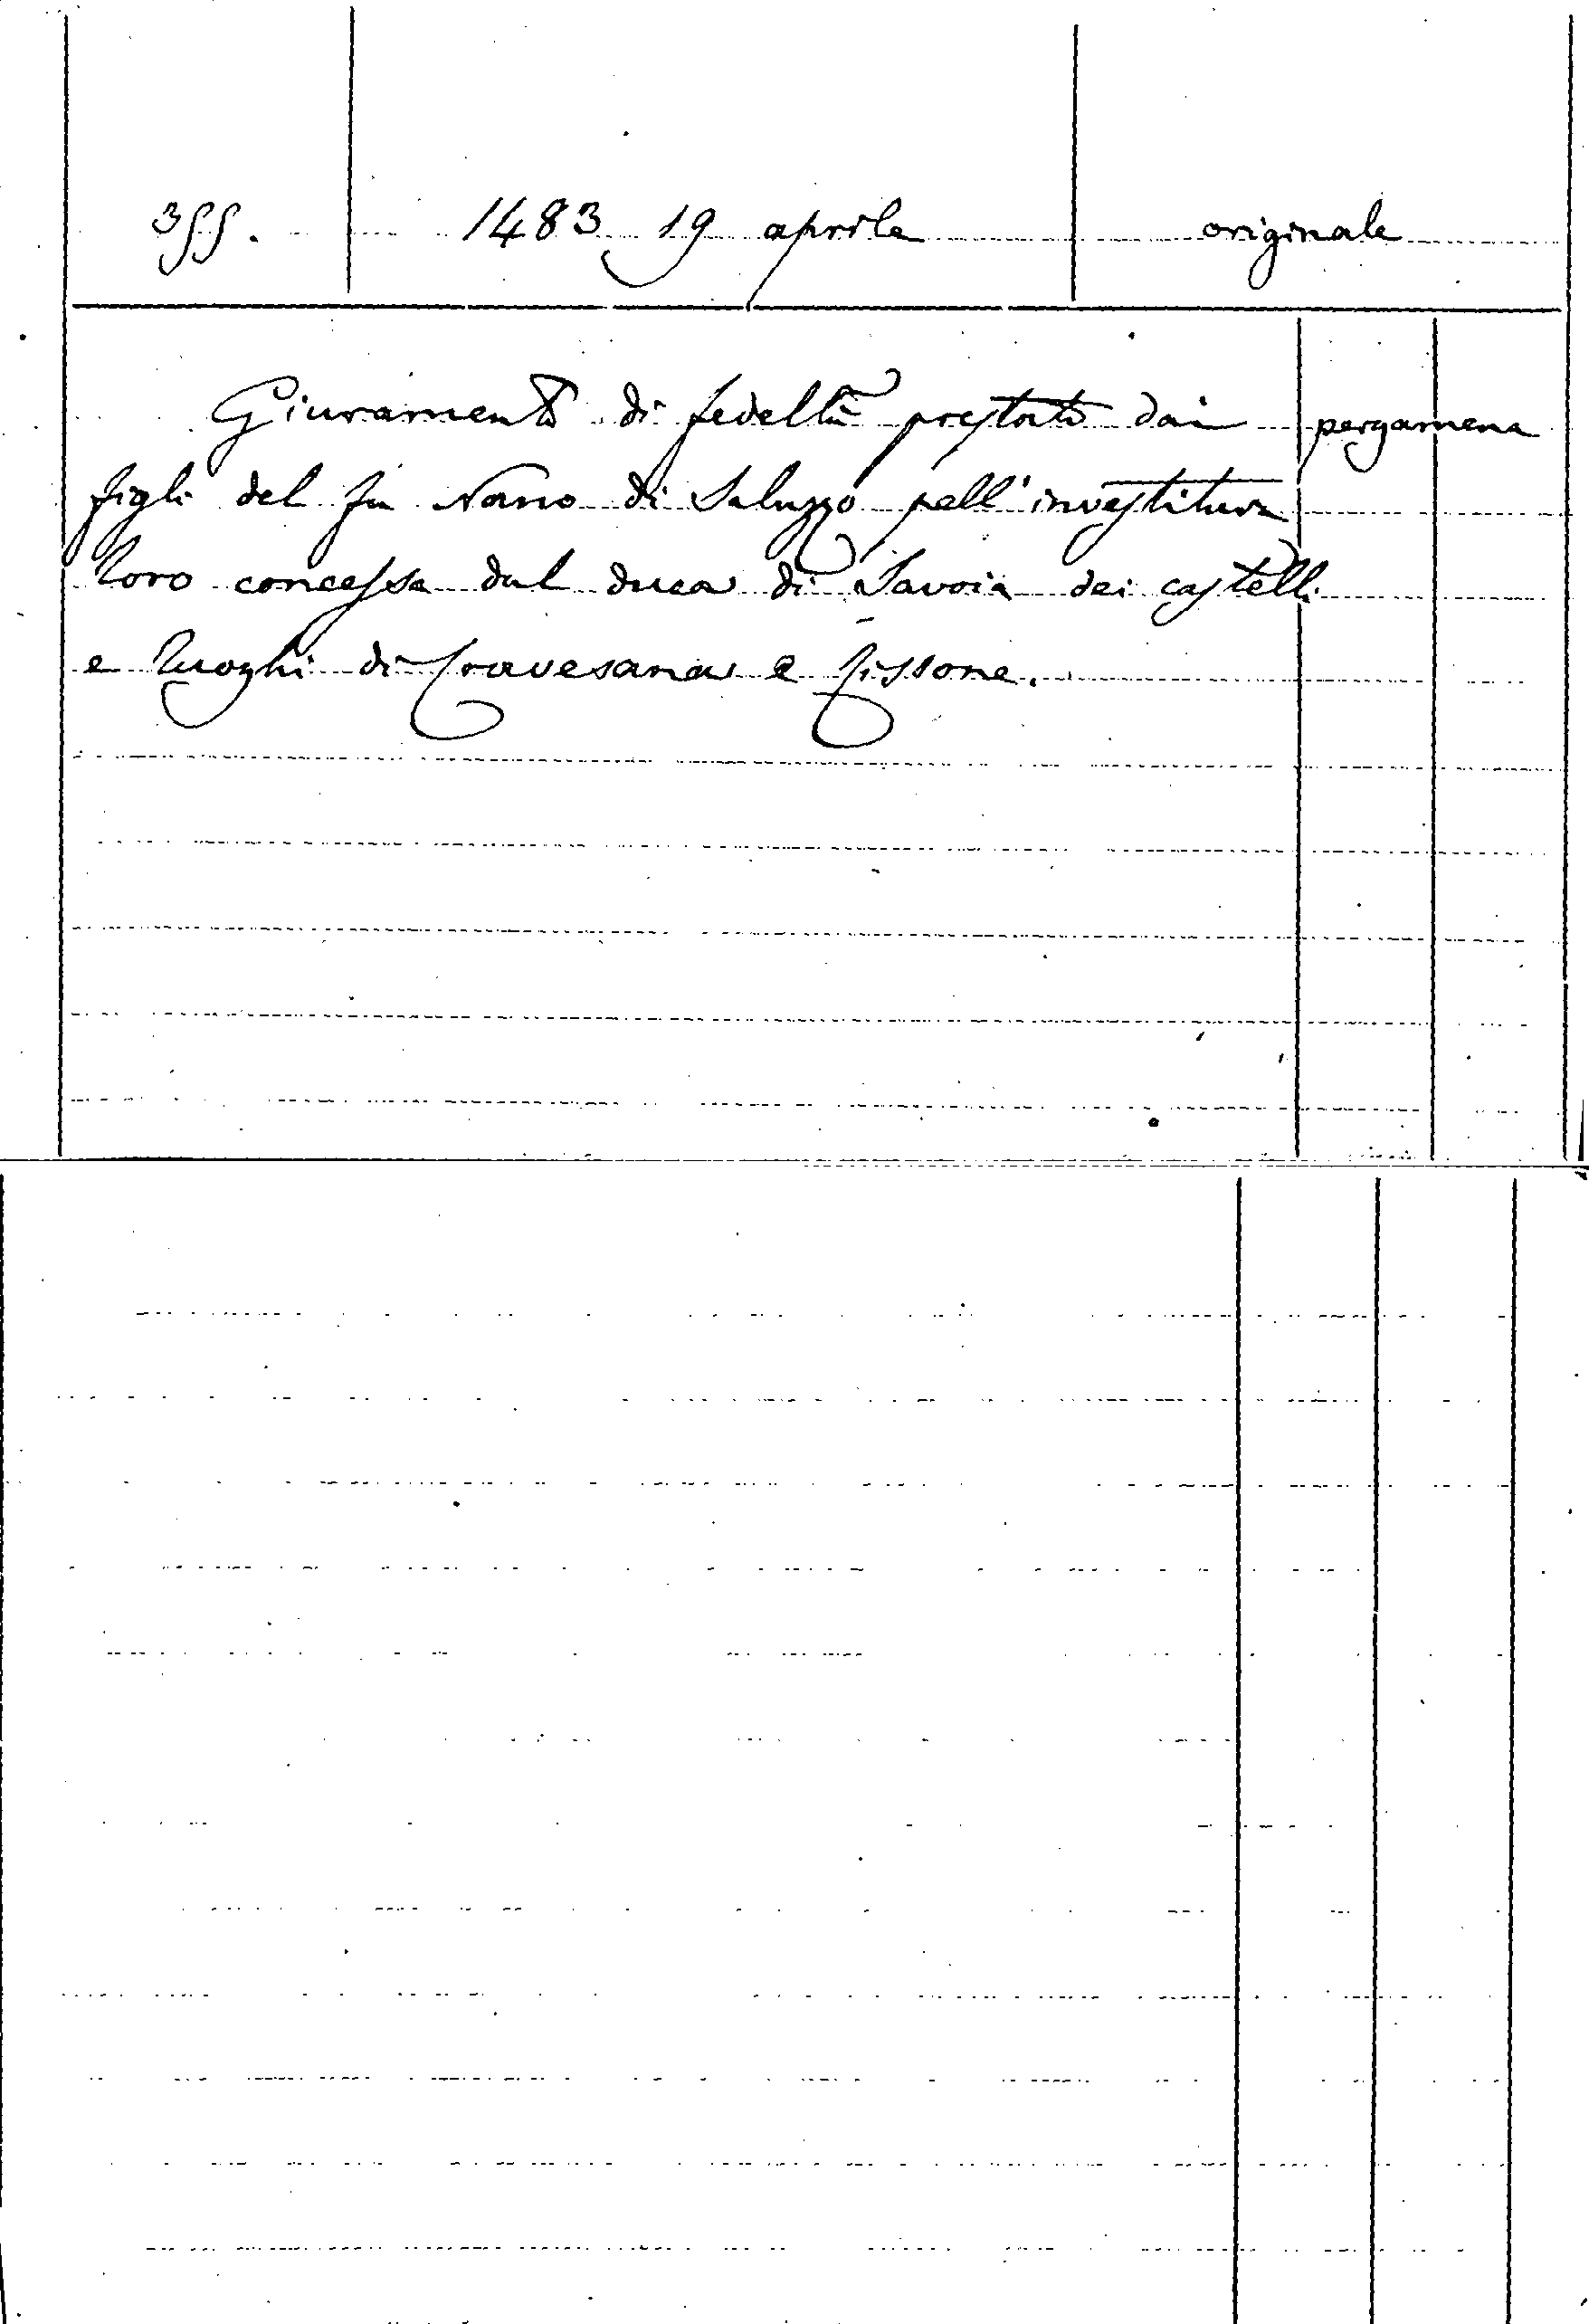 355. 1483 19 aprile originale
Giuramento di fedeltà prestato dai pergamena
figli del fu Nano di Saluzzo pell'investitura
loro concessa dal duca di Savoia dei castelli
e luoghi di Cravesana e Cissone.